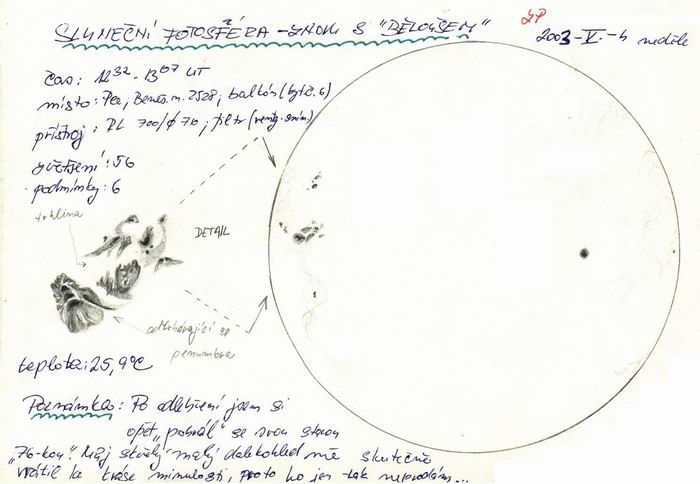 SLUNEČNÍ FOTOSFÉRA - ZNOVU S "BĚLOUŠEM"
JP
2003-V.-4 neděle
čas: 12³²-13⁰⁷ UT
místo: Pce, Beneš.n. 2528, balkón (byt č. 6)
přístroj: RL 700/φ70, filtr
zvětšení: 56
podmínky: 6
trhlina
DETAIL
odtrhávající se
penumbra
teplota: 25,9°C
Poznámka: Po odlehčení jsem si
opět „pohrál" se svou starou
„76-kou". Můj skvělý malý dalekohled mě skutečně
vrátil ke kráse minulosti, proto ho jen tak neprodám...